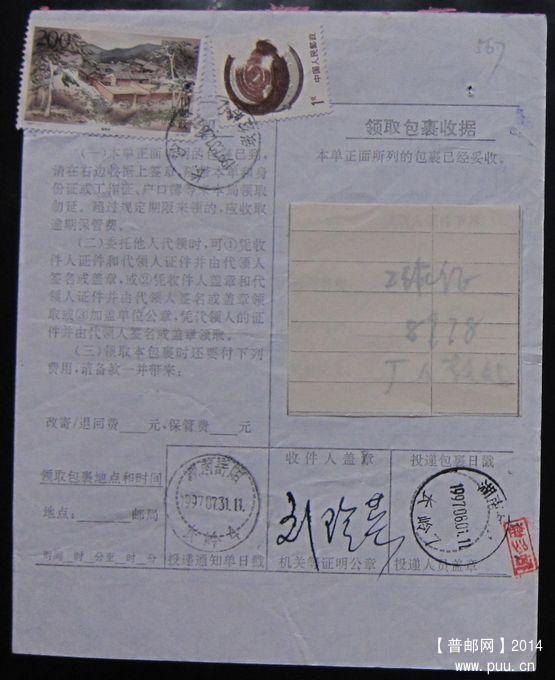 200
中国人民邮政
567
领取包裹收据
(一)本单正面所列的包裹已到,
本单正面所列的包裹已经妥收。
请在右边收据上签章,
份证或工作证、户口簿等
勿延。超过规定期限来领的,应收取
逾期保管费。
(二)委托他人代领时,可①凭收
件人证件和代领人证件并由代领人
签名或盖章,或②凭收件人盖章和代
领人证件并由代领人签名或盖章领
取或③加盖单位公章,凭代领人的证
件并由代领人签名或盖章领取。
(三)领取本包裹时还要付下列
费用,请备款一并带来:
8978
改寄/退回费___元,保管费___元
领取包裹地点和时间
收件人盖章
投递包裹日戳
地点:______邮局
湖南岳阳
1997.07.31.11
1997.06.01.11
时间__时__分至__时__分
投递通知单日戳
机关等证明公章
投递人员盖章
【普邮网】2014
www.puu.cn